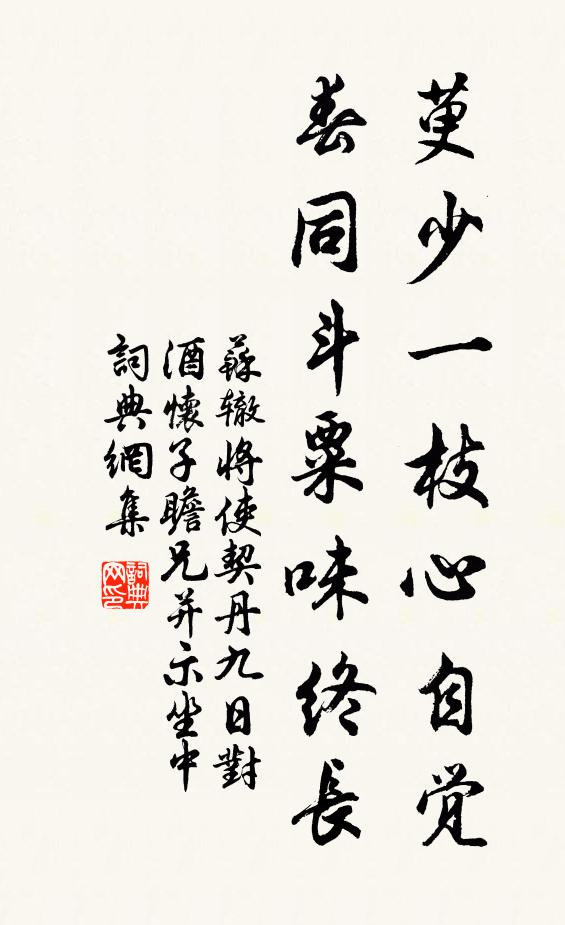 萸少一枝心自觉
春同斗粟味終長
蘇辙将使契丹九日對
酒懷子瞻兄并示坐中
詞典網集
詞典网印